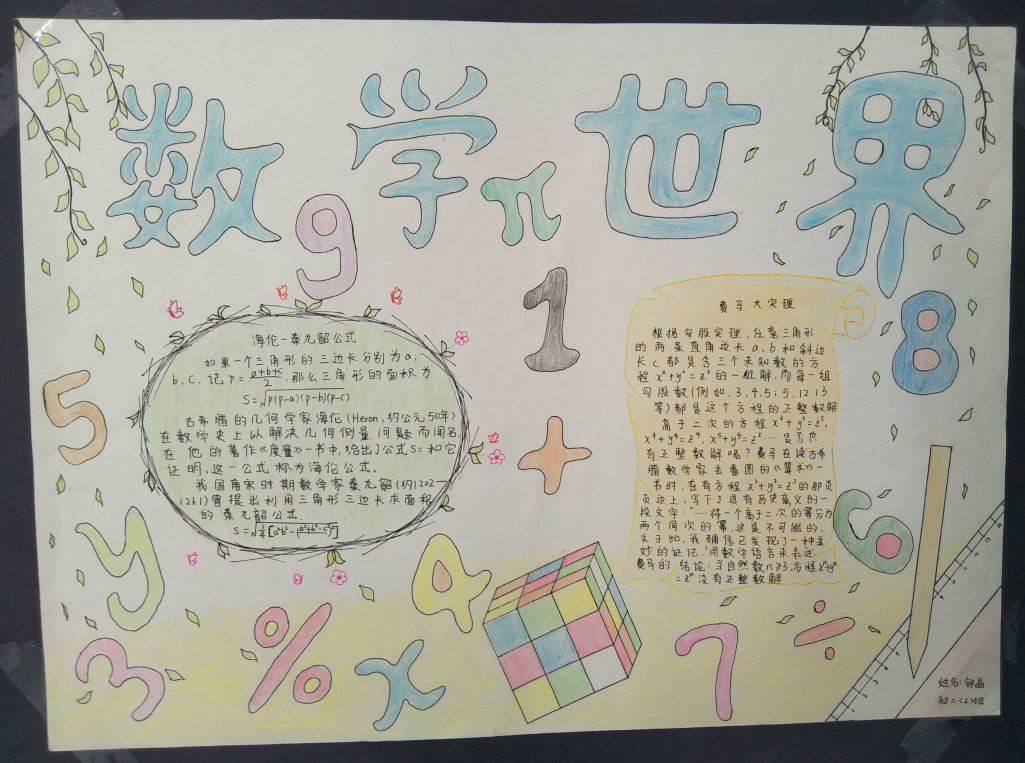 数学世界
π
9
1
8
5
+
6
y
4
3
%
x
7
÷
海伦-秦九韶公式
如果一个三角形的三边长分别为a,
b,c,记p=\frac{a+b+c}{2},那么三角形的面积为
S=√p(p-a)(p-b)(p-c)
古希腊的几何学家海伦(Heron,约公元50年)
在数学史上以解决几何侧量问题而闻名.
在他的著作《度量》一书中,给出了公式S=和它
证明,这一公式称为海伦公式.
我国南宋时期数学家秦九韶(约1202—
1261)曾提出利用三角形三边长求面积
的秦九韶公式.
费马大定理
根据勾股定理,任意三角形
的两条直角边长a,b和斜边
长c都是含三个未知数的方
程x²+y²=z²的一组解.而每一组
勾股数(例如,3,4,5;5,12,13
等)都是这个方程的正整数解
高于二次的方程x³+y³=z³,
x⁴+y⁴=z⁴,x⁵+y⁵=z⁵……是否也
有正整数解呢?费马在读古希
腊数学家丢番图的《算术》一
书时,在有方程x²+y²=z²的那页
页边上,写下了具有历史意义的一
段文字:“……将一个高于二次的幂分为
两个同次的幂,这是不可能的.
关于此,我确信已发现了一种美
妙的证法.”用数学语言来表述
费马的结论:当自然数n≥3,方程xⁿ+yⁿ
=zⁿ没有正整数解
姓名:钟晶
初二<2>班